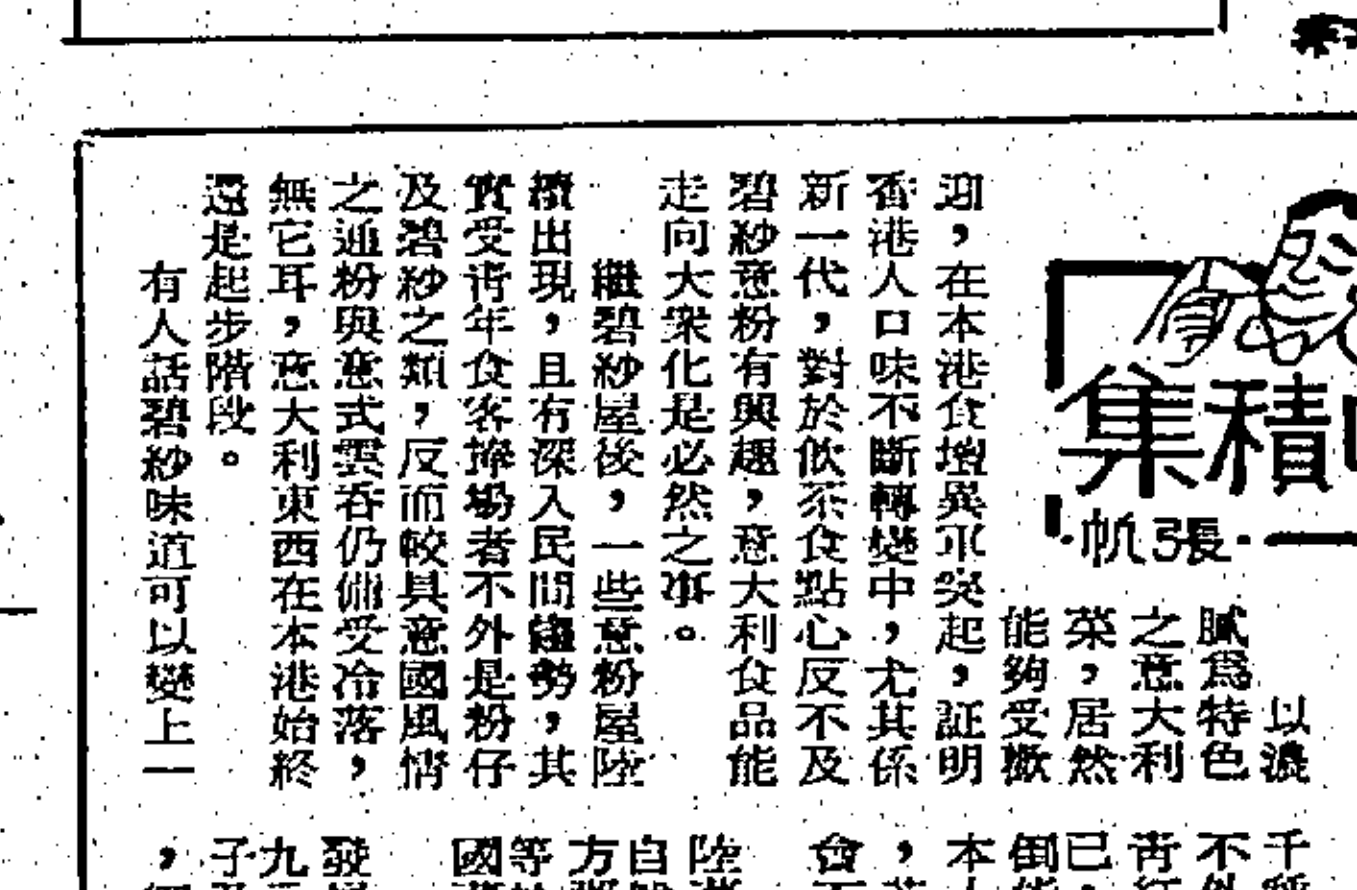 積集
張帆
以濃
膩爲特色
之意大利
菜，居然
能夠受歡
迎，在本港食壇異軍突起，証明
香港人口味不斷轉變中，尤其係
新一代，對於飲茶食點心反不及
碧紗意粉有興趣，意大利食品能
走向大衆化是必然之事。
繼碧紗屋後，一些意粉屋陸
續出現，且有深入民間趨勢，其
實受青年食客捧場者不外是粉仔
及碧紗之類，反而較具意國風情
之通粉與意式雲吞仍備受冷落，
無它耳，意大利東西在本港始終
還是起步階段。
有人話碧紗味道可以變上一
千
不外
青紅
已，
倒能
本
，
會
陸
自
方
等
國
發
九
子
，